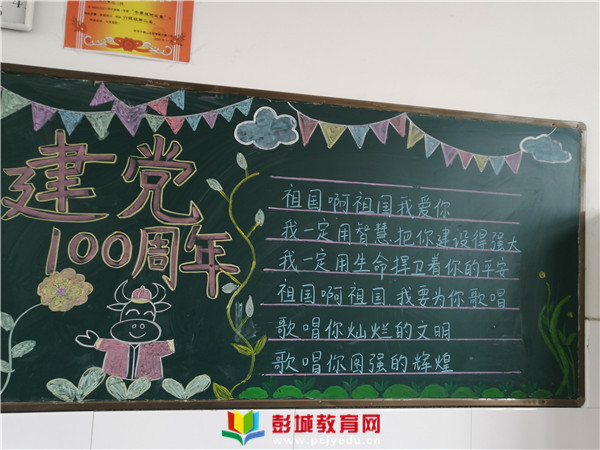 建党
100周年
祖国啊祖国我爱你
我一定用智慧把你建设得强大
我一定用生命捍卫着你的平安
祖国啊祖国我要为你歌唱
歌唱你灿烂的文明
歌唱你图强的辉煌
彭城教育网
www.pcjyedu.cn